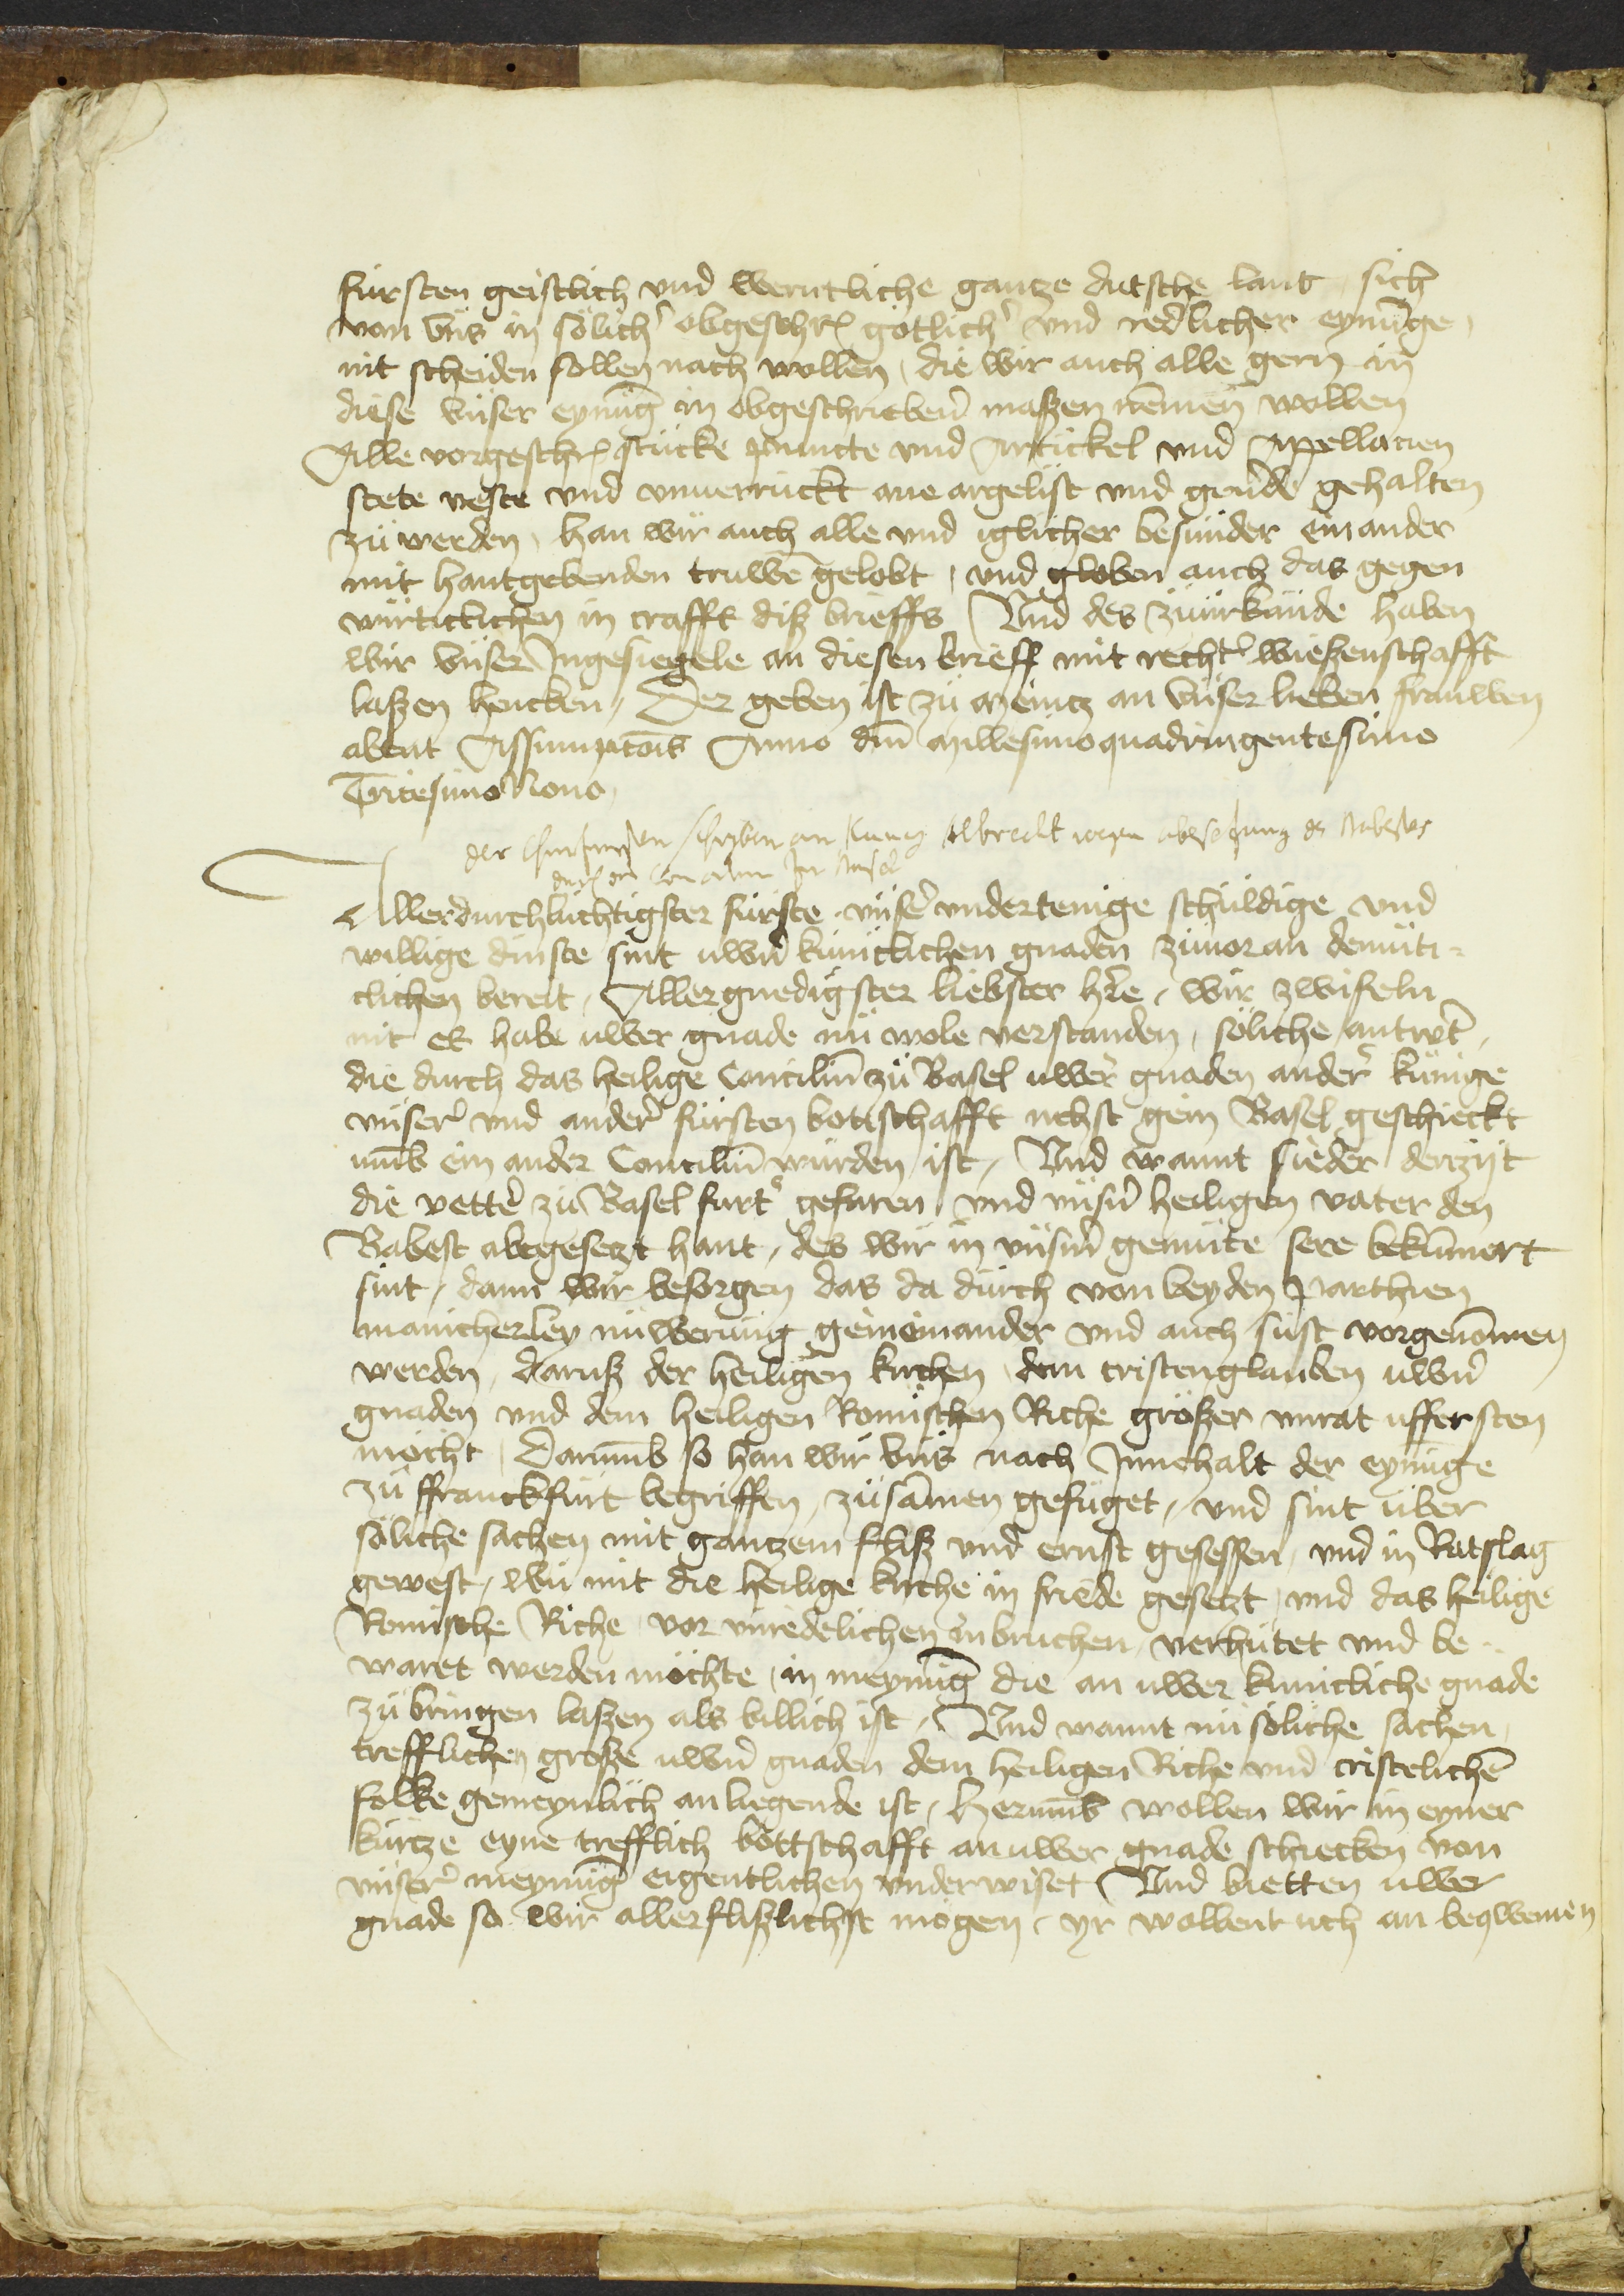 fürsten geistlich vnd werntliche gantze dutsche lant sich
von vns in sölich' obgeschr' götlich' vnd redlicher eynūge,
nit scheiden sollen nach wollen, die wir auch alle gern in
diese vnser eynūg in obgeschrieben̄ maßen nemen wollen
Alle vorgeschr' stücke puncte vnd Artickel vnd Appellacien
stete veste vnd vnuerruckt ane argelist vnd geu'de gehalten
zü werden, han wir auch alle vnd iglicher besunder einander
mit hantgebenden truwē gelobt, vnd globen auch das gegen
würticlichen in crafft diß brieffs Vnd des zü urkunde haben
wir vnser Ingesiegele an diesen brieff mit recht' wießenschafft
laßen hencken, Der geben ist zü Meintz an vnser lieben frauwen
abent Assumptōis Anno dn̄i Millesimo quadringentesimo
Tricesimo Nono,
der Churfursten schryben an kunig Albrecht wegen abesetzung des Babestes
durch das Concilium zu Basel
Allerdurchluchtigster fürste vnser' vndertenige schuldige vnd
willige dinste sint uwern̄ küniclichen gnaden zünoran demüti-
clichen bereit, Allergnedigster liebster h're, wir zwifeln
nit es habe uwer gnade nü wole verstanden, söliche antwort,
die durch das heilige Conciliū zü Basel uwer gnaden ander' künige
vnser' vnd ander' fürsten bottschafft nehst gein Basel geschickt
umb ein ander Conciliū würden ist, Vnd wannt sieder derzijt
die vetter zü Basel furt' gefaren vnd vnsern̄ heiligen vater den
Babest abegesetzt hant, des wir in vnserm̄ gemüte sere bekūmert
sint, dann wir besorgen das da durch von beyden Parthien
manicherley nüwerūng geineinander vnd auch sust vorgenōmen
werden, daruß der heiligen kirchen dem cristenglauben uwern̄
gnaden vnd dem heiligen Romischen Riche größer vnrat ufferston
möcht, Darumb so han wir vns nach Innehalt der eynūge
zü ffranckfürt begriffen, züsāmen gefüget, vnd sint über
söliche sachen mit gantzem fliß vnd ernst gesessen, vnd in Ratslag
gewest, wü mit die heilige kirche in friede gesetzt, vnd das heilige
Romische Riche vor vnredelichen inbruchen verhütet vnd be-
waret werden möchte, in meynūg die an uwer küncliche gnade
zü bringen laßen als billich ist, Vnd wannt nü söliche sachen
trefflichen große uwern̄ gnaden dem heiligen Riche vnd cristelichē
folke gemeynlich anliegende ist, Herumb wollen wir in eyner
kürtze eyne trefflich bottschafft an uwer gnade schicken von
vnser' meynūg eigentlichen vnderwiset Vnd bietten uwer
gnade so wir allerflißlichst mogen, yr wollent uch an beqwemen